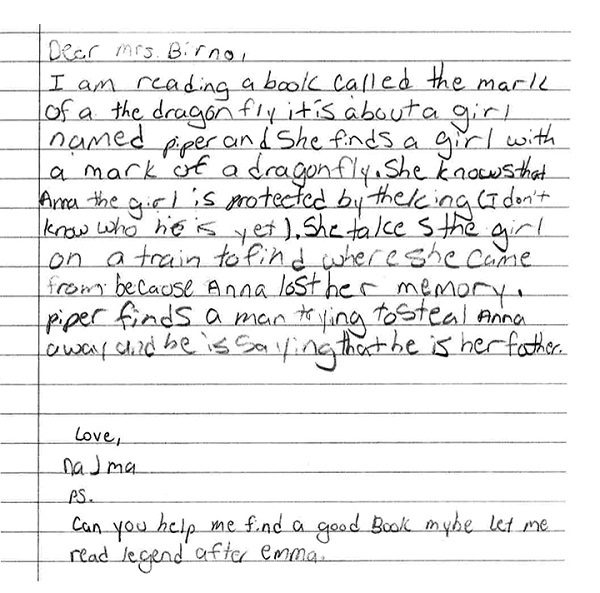 Dear Mrs. Birno,
I am reading a book called the mark
of a the dragonfly it is about a girl
named piper and she finds a girl with
a mark of a dragonfly. She knows that
Anna the girl is protected by the king (I don't
know who he is yet). She takes the girl
on a train to find where she came
from because Anna lost her memory.
piper finds a man trying to steal Anna
away and he is saying that he is her father.
Love,
Najma
PS.
Can you help me find a good Book mybe let me
read legend after emma.